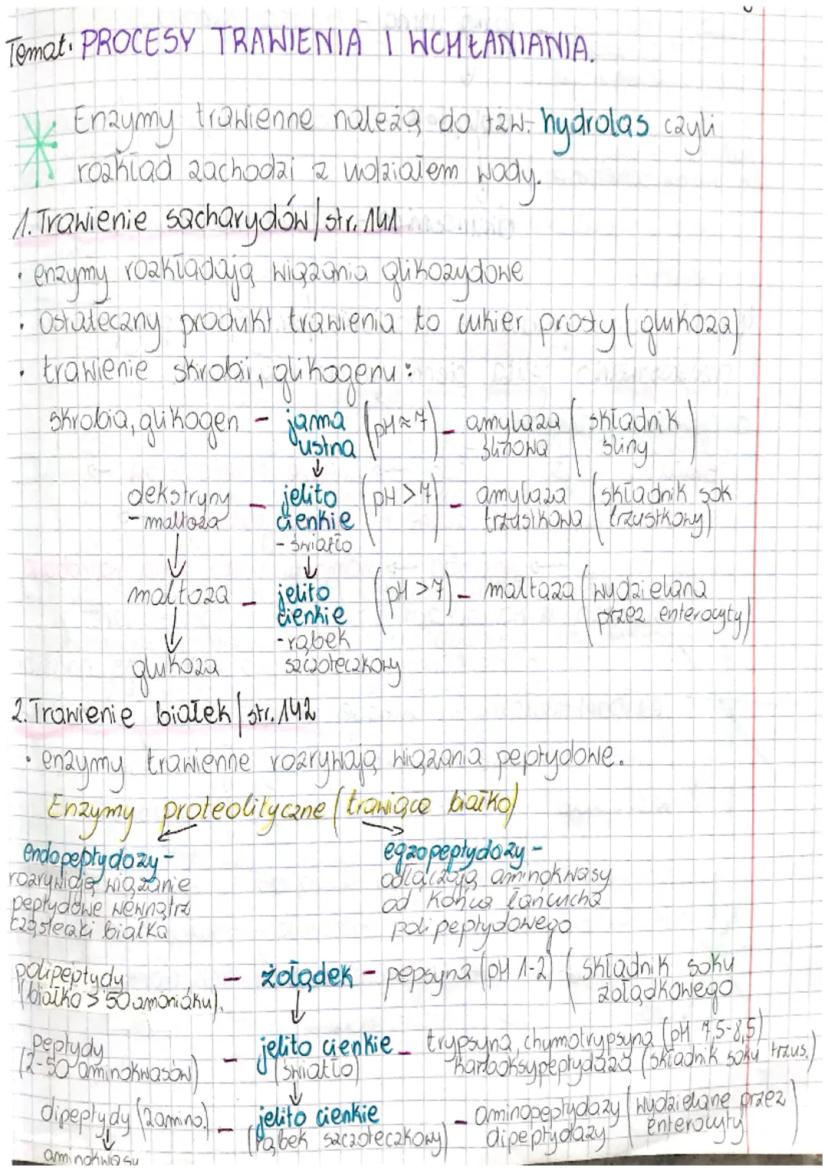 Temat: PROCESY TRAWIENIA I WCHŁANIANIA.
Enzymy trawienne należą do tzw. hydrolas czyli
rozkład zachodzi z udziałem wody.
1. Trawienie sacharydów / str. 141
• enzymy rozkładają wiązania glikozydowe
• Ostateczny produkt trawienia to cukier prosty (glukoza)
• trawienie skrobi, glikogenu:
skrobia, glikogen - jama ustna (pH≈7) - amylaza ślinowa (składnik śliny)
↓
dekstryny - maltoza - jelito cienkie - światło (pH >7) - amylaza trzustkowa (składnik sok trzustkowy)
↓ ↓
maltoza - jelito cienkie - rąbek szczoteczkowy (pH >7) - maltaza (wydzielana przez enterocyty)
↓
glukoza
2. Trawienie białek / str. 142
• enzymy trawienne rozrywają wiązania peptydowe.
Enzymy proteolityczne (trawiące białko)
endopeptydazy -
rozrywają wiązanie
peptydowe wewnątrz
cząsteczki białka
egzopeptydazy -
odłączają aminokwasy
od końca łańcucha
polipeptydowego
polipeptydy (białko > 50 amoniaku). - żołądek - pepsyna (pH 1-2) (składnik soku żołądkowego
↓
peptydy (2-50 aminokwasów) - jelito cienkie (światło) - trypsyna, chymotrypsyna (pH 7,5-8,5) karboksypeptydaza (składnik soku trzus.)
↓
dipeptydy (2amino.) - jelito cienkie (rąbek szczoteczkowy) - aminopeptydazy dipeptydazy (wydzielane przez enterocyty)
↓
aminokwasy